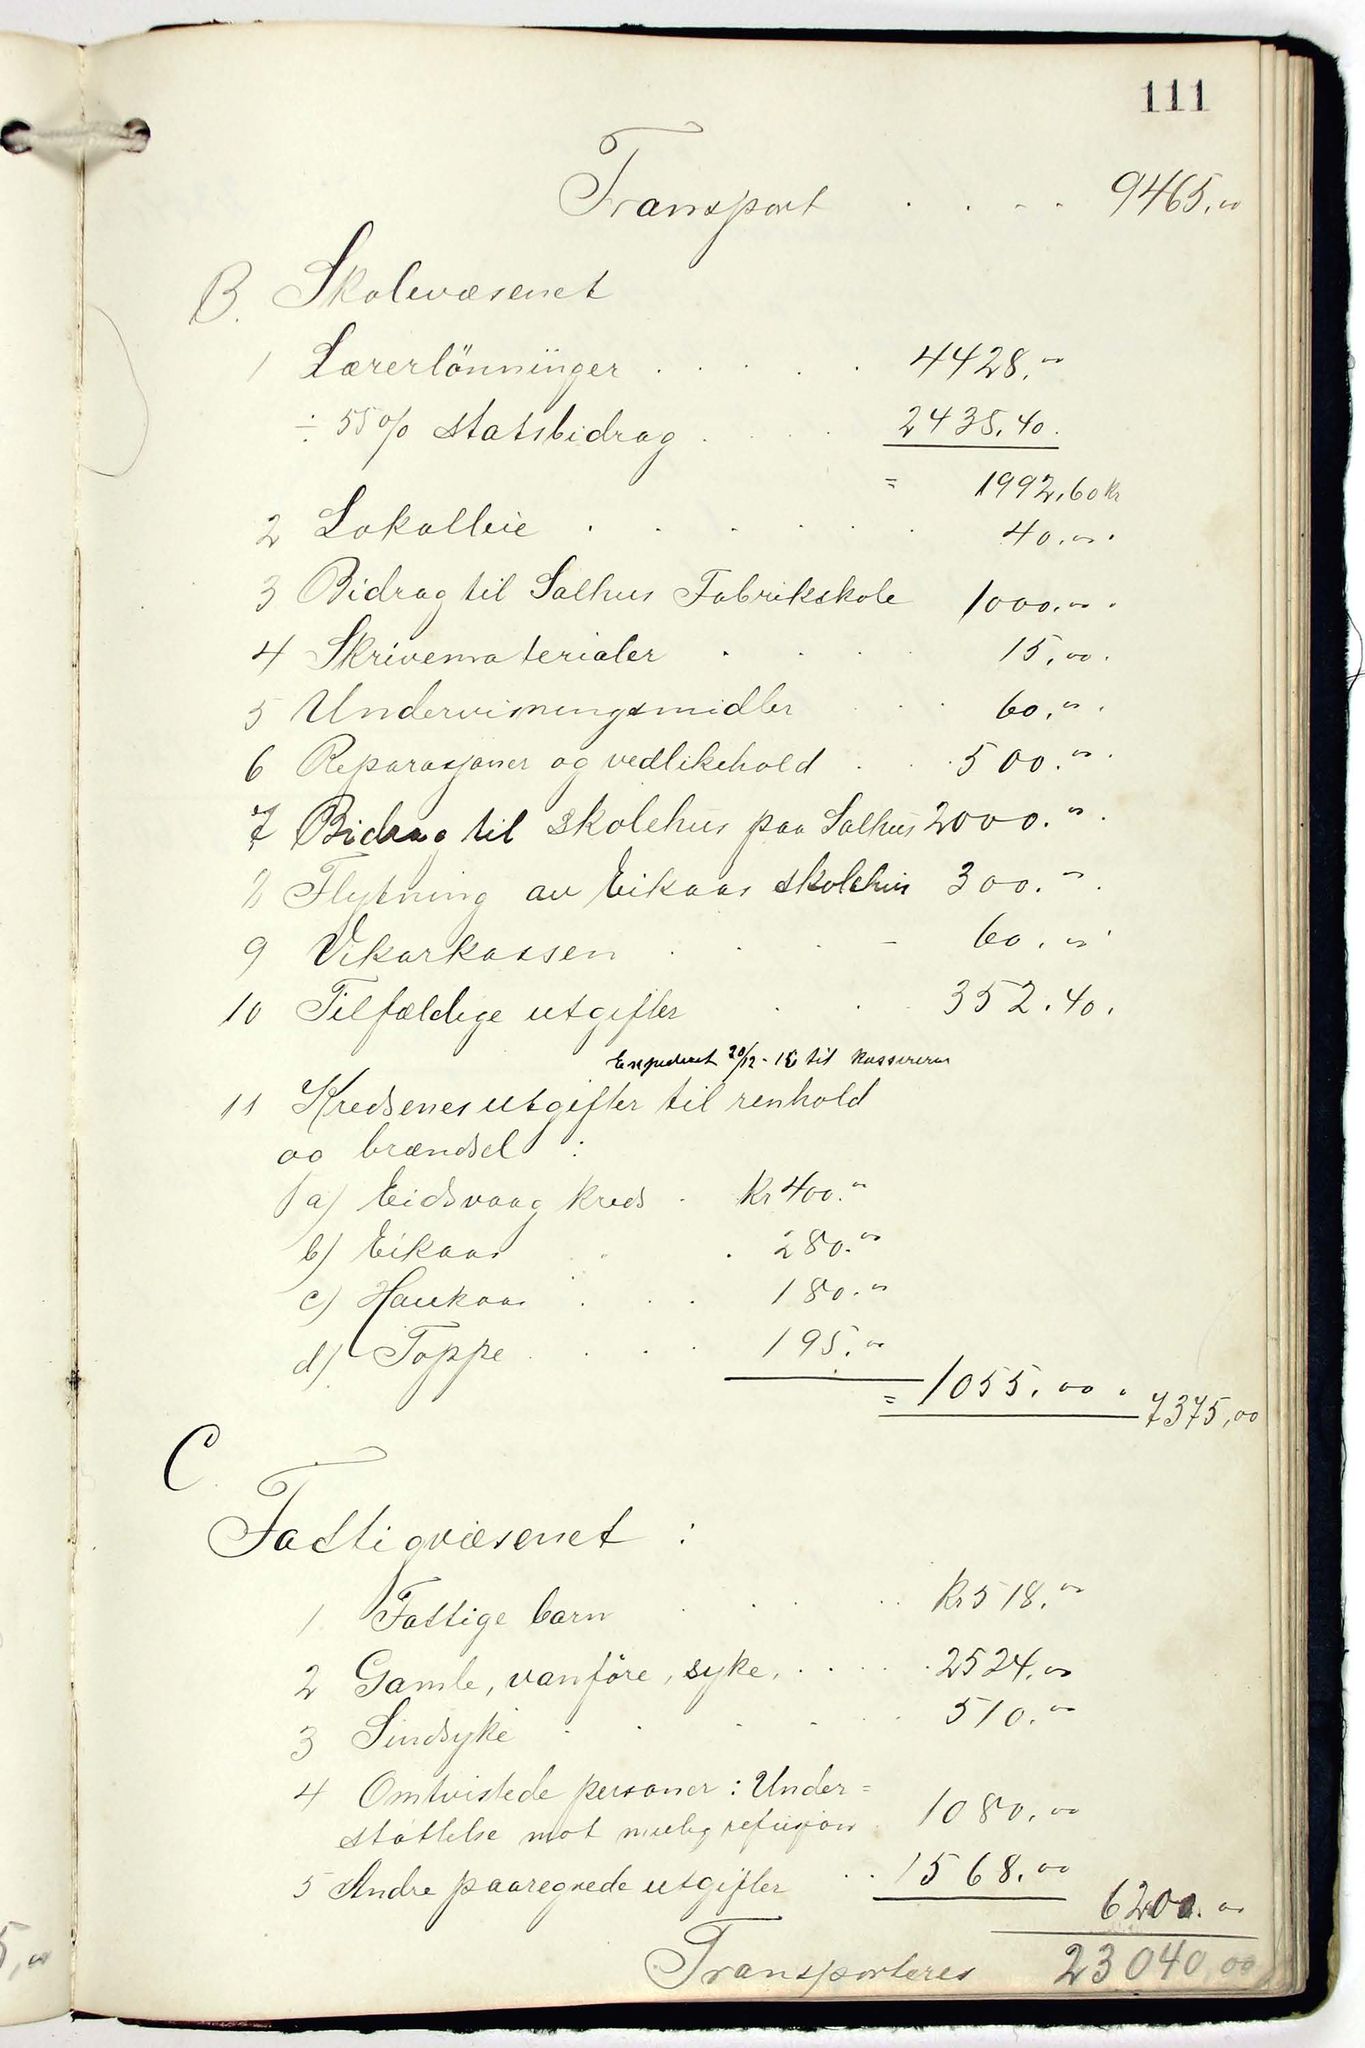 111
Transport . . . . 9465,00
B. Skolevæsenet
1 Lærerlönninger . . . . . 4428,00
÷ 55% statsbidrag . . . . 2435,40.
= 1992,60 kr
2 Lokalleie . . . . . . 40.00.
3 Bidrag til Salhus Fabrikskole 1000.00.
4 Skrivematerialer . . . . 15,00.
5 Undervisningsmidler . . . 60.00.
6 Reparasjoner og vedlikehold . . . 500.00.
7 Bidrag til skolehus paa Salhus 2000.00.
8 Flytning av Eikaas skolehus 300.00.
9 Vikarkassen . . . - 60.00.
10 Tilfældige utgifter . . . 352.40.
Expederet 20/12-15 til kassereren
11 Kredsenes utgifter til renhold
og brændsel :
a) Eidsvaag kreds . Kr 400.00
b) Eikaas . . 280.00
c) Haukaas . . . 180.00
d) Toppe . . . . 195.00
= 1055.00. 7375,00
C.
Fattigvæsenet :
1. Fattige barn . . . . Kr 518.00
2 Gamle, vanföre, syke, . . . . . 2524,00
3 Sindsyke . . . . . 510.00
4 Omtvistede personer : Under=
støttelse mot mulig refusjon . 1080.00
5 Andre paaregnede utgifter . . 1568.00
6200.00
Transporteres 23040,00
5,00